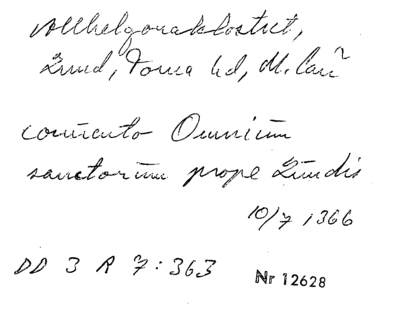 Allhelgonaklostret,
Lund, Torna hd, M.län
conuento Omnium
sanctorum prope Lundis
10/7 1366
DD 3 R 7:363
Nr 12628